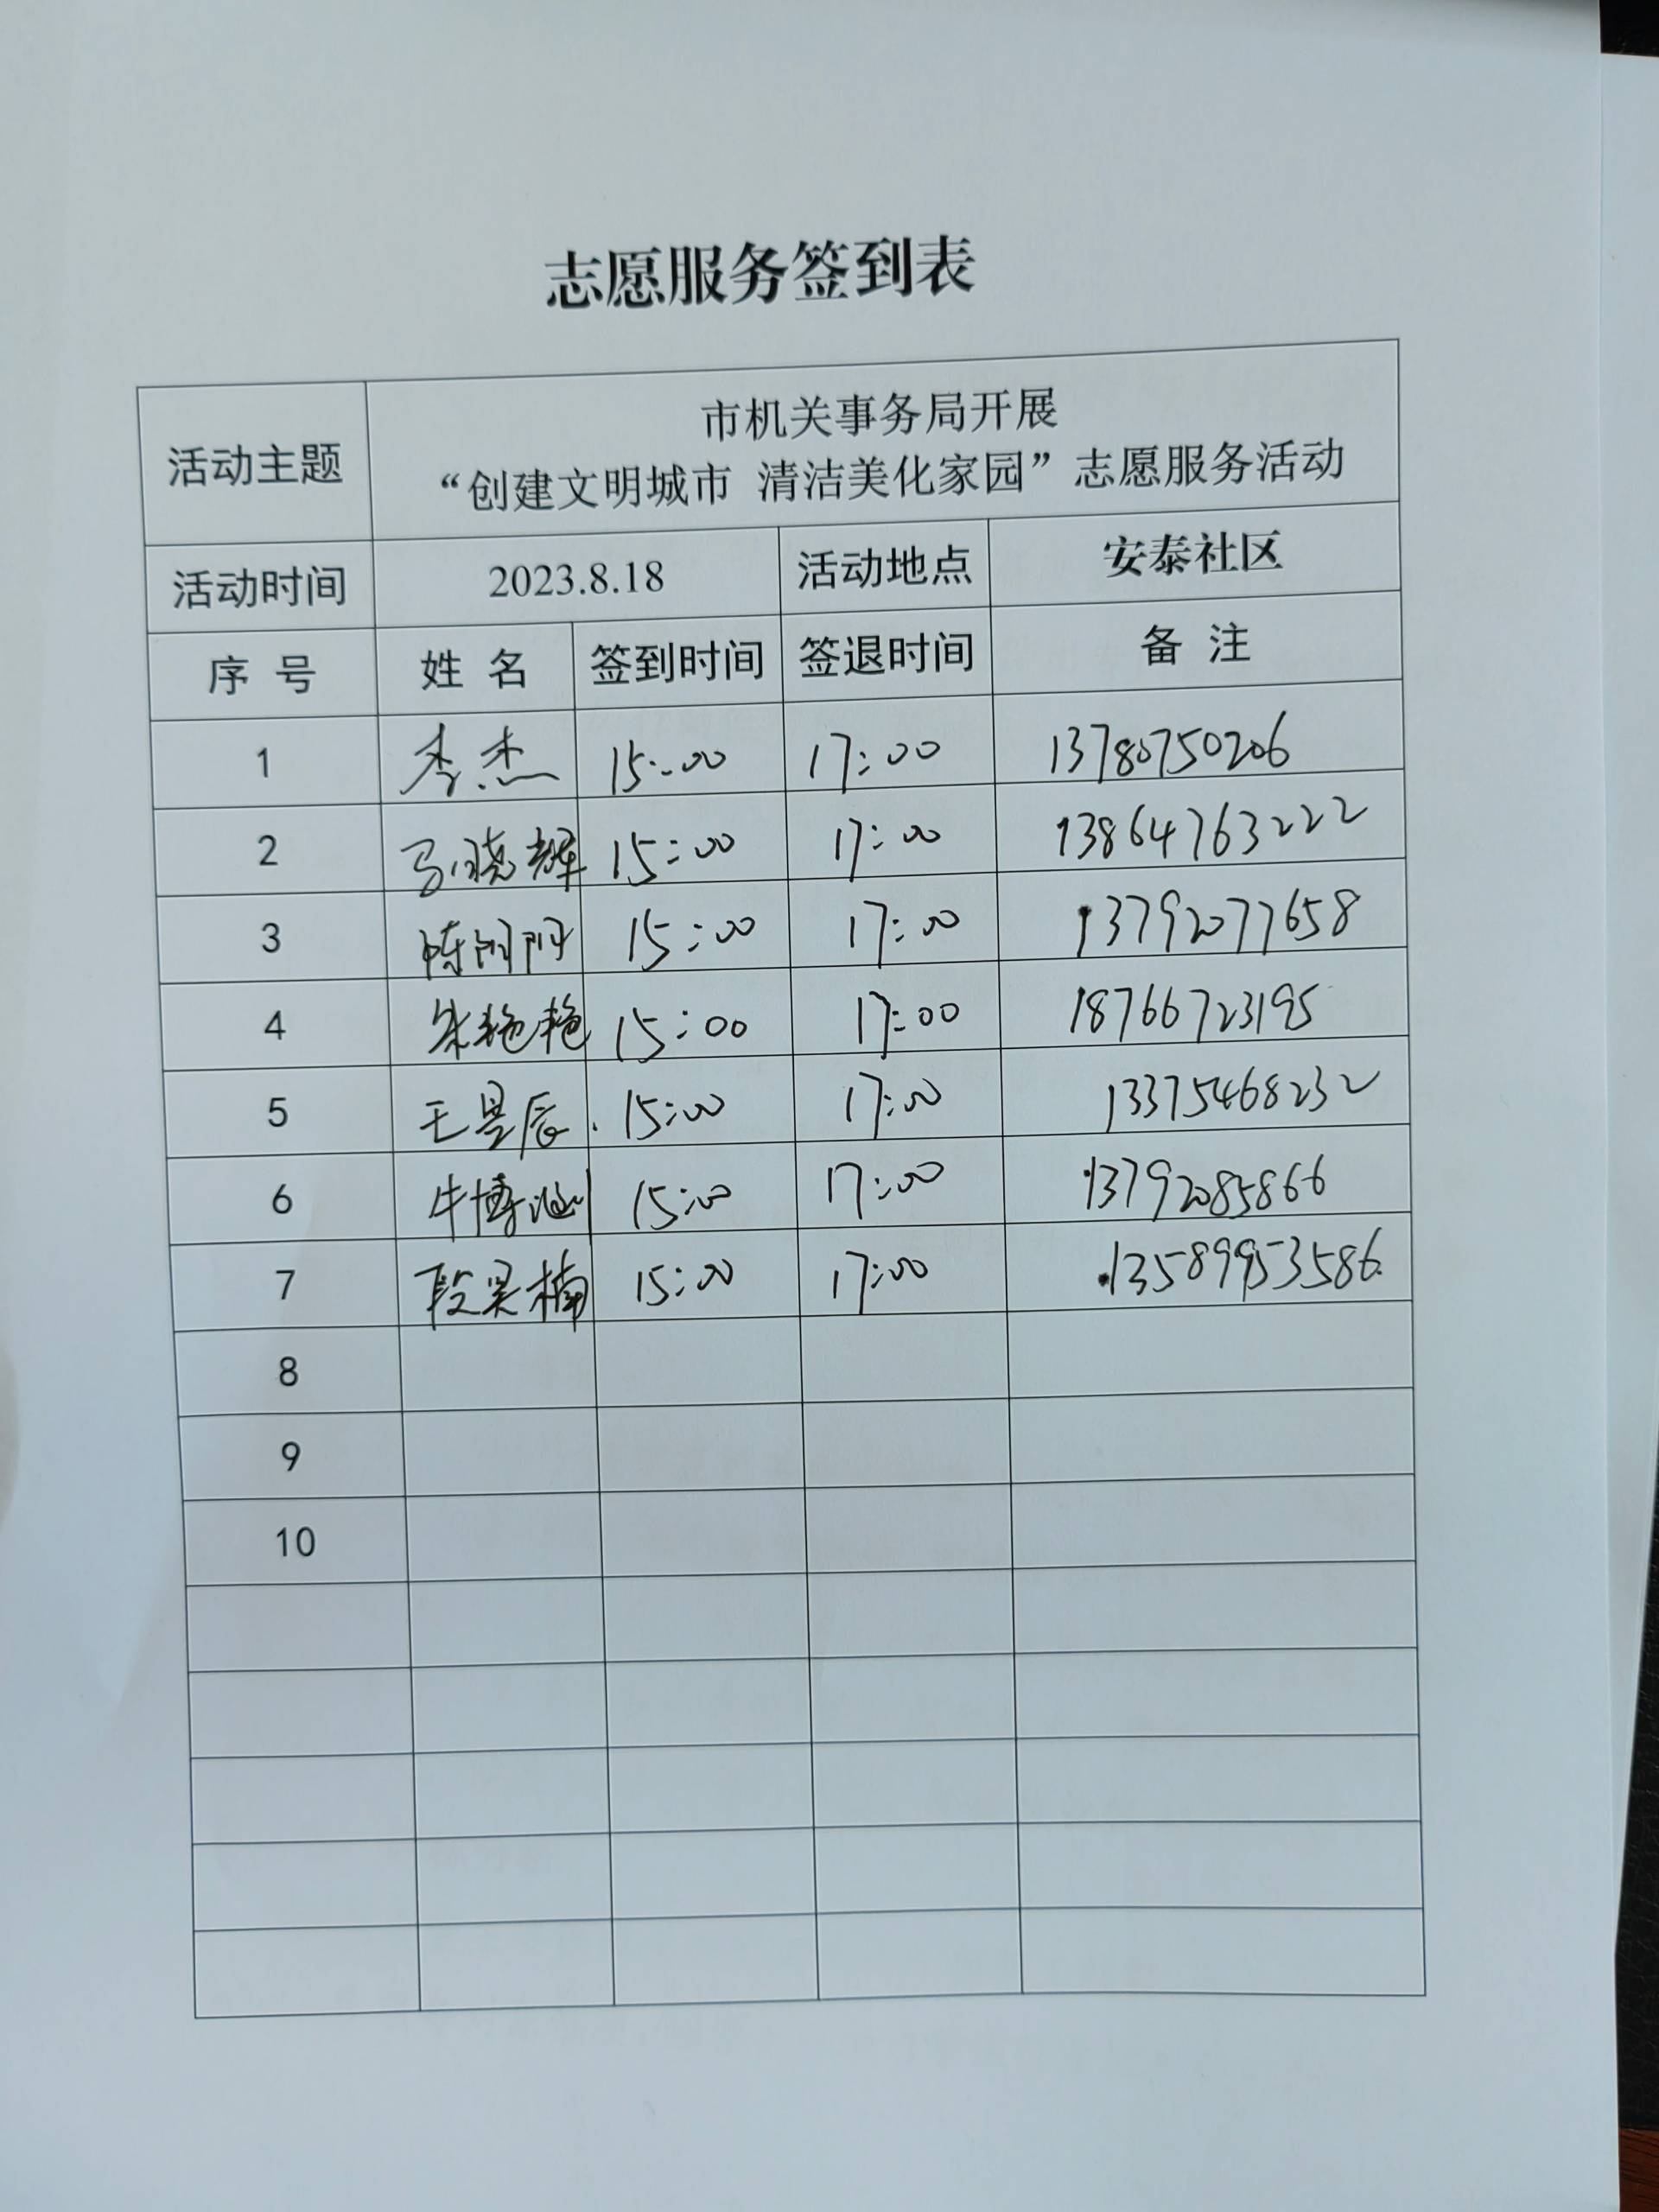 志愿服务签到表
活动主题
市机关事务局开展
“创建文明城市 清洁美化家园”志愿服务活动
活动时间 2023.8.18 活动地点 安泰社区
序 号 姓 名 签到时间 签退时间 备 注
1 李杰 15:00 17:00 13780750206
2 马晓辉 15:00 17:00 13864763222
3 陈阿阿 15:00 17:00 13792077658
4 朱艳艳 15:00 17:00 18766723195
5 王昱辰 15:00 17:00 13375468232
6 牛博 15:00 17:00 13792085866
7 段昊楠 15:00 17:00 13589953586
8
9
10